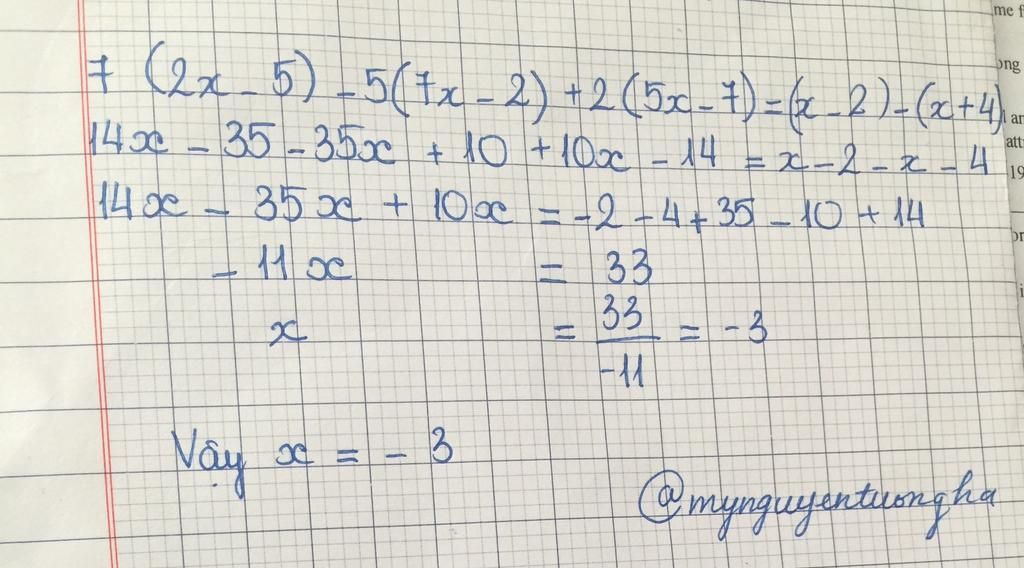 7 (2x - 5) - 5(7x - 2) + 2(5x - 7) = (x - 2) - (x + 4)
14x - 35 - 35x + 10 + 10x - 14 = x - 2 - x - 4
14x - 35x + 10x = -2 - 4 + 35 - 10 + 14
- 11x = 33
x = 33/-11 = -3
Vậy x = - 3
@mynguyentuongha
me f
ong
att
19